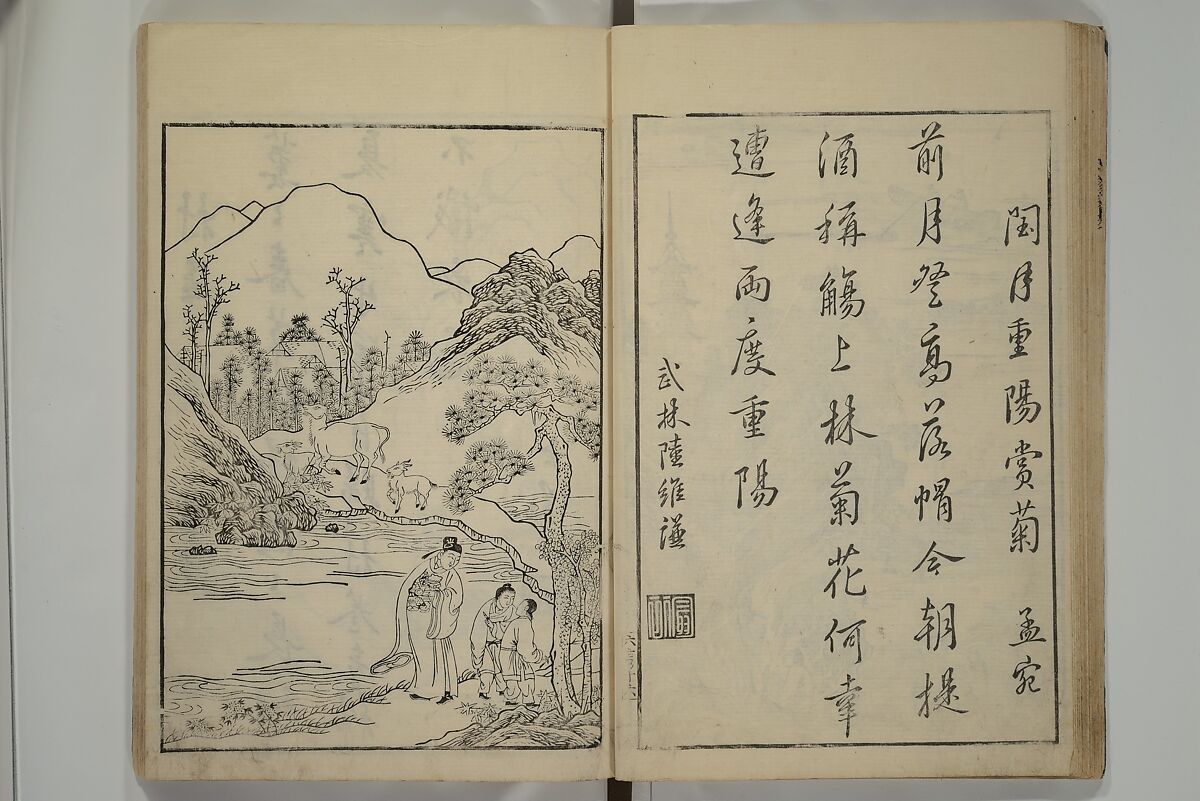 閏月重陽賞菊 孟宛
前月登高落帽今朝提
酒稱觴上林菊花何幸
遭逢兩度重陽
武林陸維謙